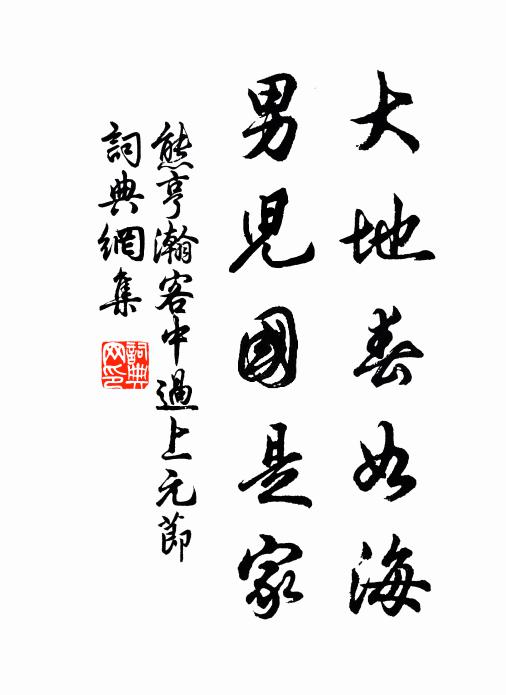 大地春如海
男兒國是家
熊亨瀚客中過上元節
詞典網集
詞典網印